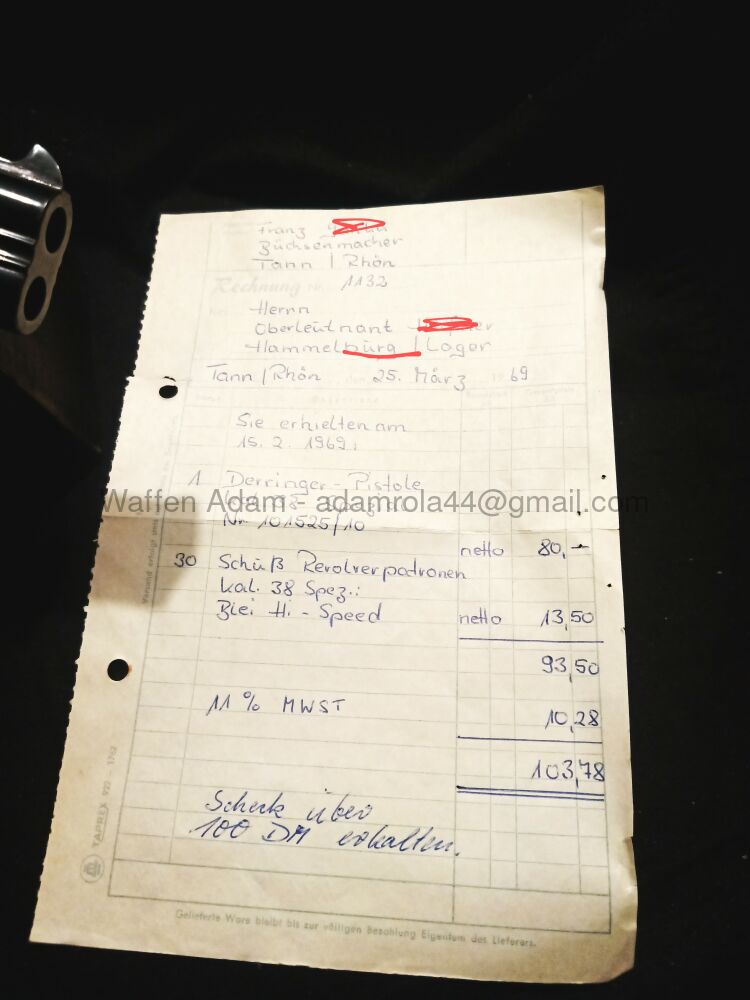 Franz
Büchsenmacher
Tann / Rhön
Rechnung Nr. 1132
Herrn
Oberleutnant
Hammelburg / Lager
Tann / Rhön, den 25. März 1969
Sie erhielten am
15. 2. 1969:
1 Derringer - Pistole
Waffen Adam - adamrola44@gmail.com
Nr. 101525/10
netto 80,-
30 Schuß Revolverpatronen
kal. 38 Spez.:
Blei Hi - Speed netto 13,50
93,50
11 % MWST 10,28
103,78
Scheck über
100 DM erhalten.
Versand erfolgt
TAPREX
Gelieferte Ware bleibt bis zur völligen Bezahlung Eigentum des Lieferers.